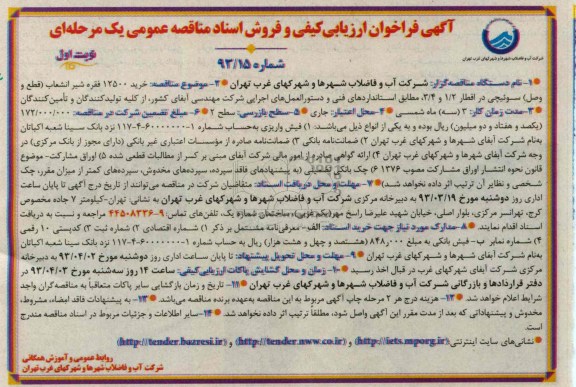 آگهی فراخوان ارزیابی کیفی و فروش اسناد مناقصه عمومی یک مرحله‌ای
شماره ۹۳/۱۵
نوبت اول
شرکت آب و فاضلاب شهرها و شهرکهای غرب تهران
۱- نام دستگاه مناقصه‌گزار: شرکت آب و فاضلاب شهرها و شهرکهای غرب تهران ۲- موضوع مناقصه: خرید ۱۲۵۰۰ فقره شیر انشعاب (قطع و
وصل) سوئیچی در اقطار ۱/۲ و ۳/۴، مطابق استانداردهای فنی و دستورالعمل‌های اجرایی شرکت مهندسی آبفای کشور، از کلیه تولیدکنندگان و تأمین‌کنندگان
۳- مدت زمان کار: ۳ (سه) ماه شمسی ۴- محل اعتبار: جاری ۵- سطح بازرسی: سطح ۲ ۶- مبلغ تضمین شرکت در مناقصه: ۱۷۲/۰۰۰/۰۰۰
(یکصد و هفتاد و دو میلیون) ریال بوده و به یکی از انواع ذیل می‌باشند: ۱) فیش واریزی به‌حساب شماره ۱-۶۰۰۰۰۰۰-۴-۱۱۷ نزد بانک سینا شعبه اکباتان
به‌نام شرکت آبفای شهرها و شهرکهای غرب تهران ۲) ضمانت‌نامه بانکی ۳) ضمانت‌نامه صادره از مؤسسات اعتباری غیر بانکی (دارای مجوز از بانک مرکزی) در
وجه شرکت آبفای شهرها و شهرکهای غرب تهران ۴) ارائه گواهی صادره از امور مالی شرکت آبفای مبنی بر کسر از مطالبات قطعی شده ۵) اوراق مشارکت- موضوع
قانون نحوه انتشار اوراق مشارکت مصوب ۱۳۷۶ ۶) چک بانکی تضمینی (به پیشنهادهای فاقد سپرده، سپرده‌های مخدوش، سپرده‌های کمتر از میزان مقرر، چک
شخصی و نظایر آن ترتیب اثر داده نخواهد شد) ۷- مهلت و محل دریافت اسناد: متقاضیان شرکت در مناقصه می‌توانند از تاریخ درج آگهی تا پایان ساعت
اداری روز دوشنبه مورخ ۹۳/۰۳/۱۹ به دبیرخانه مرکزی شرکت آب و فاضلاب شهرها و شهرکهای غرب تهران به نشانی: تهران- کیلومتر ۷ جاده مخصوص
کرج، تهرانسر مرکزی، بلوار اصلی، خیابان شهید علیرضا راسخ مهر (یکم غربی)، ساختمان شماره یک، تلفن‌های تماس ۹-۴۴۵۰۸۳۳۶ مراجعه و نسبت به دریافت
اسناد اقدام نمایند. ۸- مدارک مورد نیاز جهت خرید اسناد: الف- معرفی‌نامه مشتمل بر ذکر ۱) شماره اقتصادی ۲) شماره ثبت ۳) کدپستی ۱۰ رقمی
۴) شماره نمابر ب- فیش بانکی به مبلغ ۸۴۸,۰۰۰ (هشتصد و چهل و هشت هزار) ریال به حساب شماره ۱-۶۰۰۰۰۰۰-۴-۱۱۷ نزد بانک سینا شعبه اکباتان
به‌نام شرکت آبفای شهرها و شهرکهای غرب تهران ۹- مهلت و محل تحویل پیشنهاد: تا پایان ساعت اداری روز دوشنبه مورخ ۹۳/۰۴/۰۲ به دبیرخانه
مرکزی شرکت آبفای شهرکهای غرب در قبال اخذ رسید ۱۰- زمان و محل گشایش پاکات ارزیابی‌کیفی: ساعت ۱۴ روز سه‌شنبه مورخ ۹۳/۰۴/۰۳ در
دفتر قراردادها و بازرگانی شرکت آب و فاضلاب شهرها و شهرکهای غرب تهران ۱۱- تاریخ و زمان بازگشایی سایر پاکات متعاقباً به مناقصه‌گران واجد
شرایط اعلام خواهد شد. ۱۲- هزینه درج هر ۲ مرحله چاپ آگهی مربوط به این مناقصه به‌عهده برنده مناقصه می‌باشد. ۱۳- به پیشنهادات فاقد امضاء، مشروط،
مخدوش و پیشنهاداتی که بعد از مدت مقرر این آگهی واصل شود، مطلقاً ترتیب اثر داده نخواهد شد. ۱۴- سایر اطلاعات و جزئیات مربوط در اسناد مناقصه مندرج
است.
نشانی‌های سایت اینترنتی: (http://iets.mporg.ir) و (http://tender.nww.co.ir) و (http://tender.bazresi.ir)
روابط عمومی و آموزش همگانی
شرکت آب و فاضلاب شهرها و شهرکهای غرب تهران